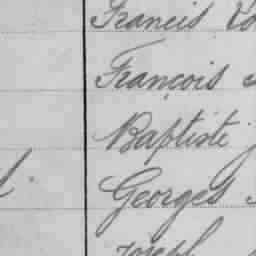 Francis
François
Baptiste
Georges
Joseph